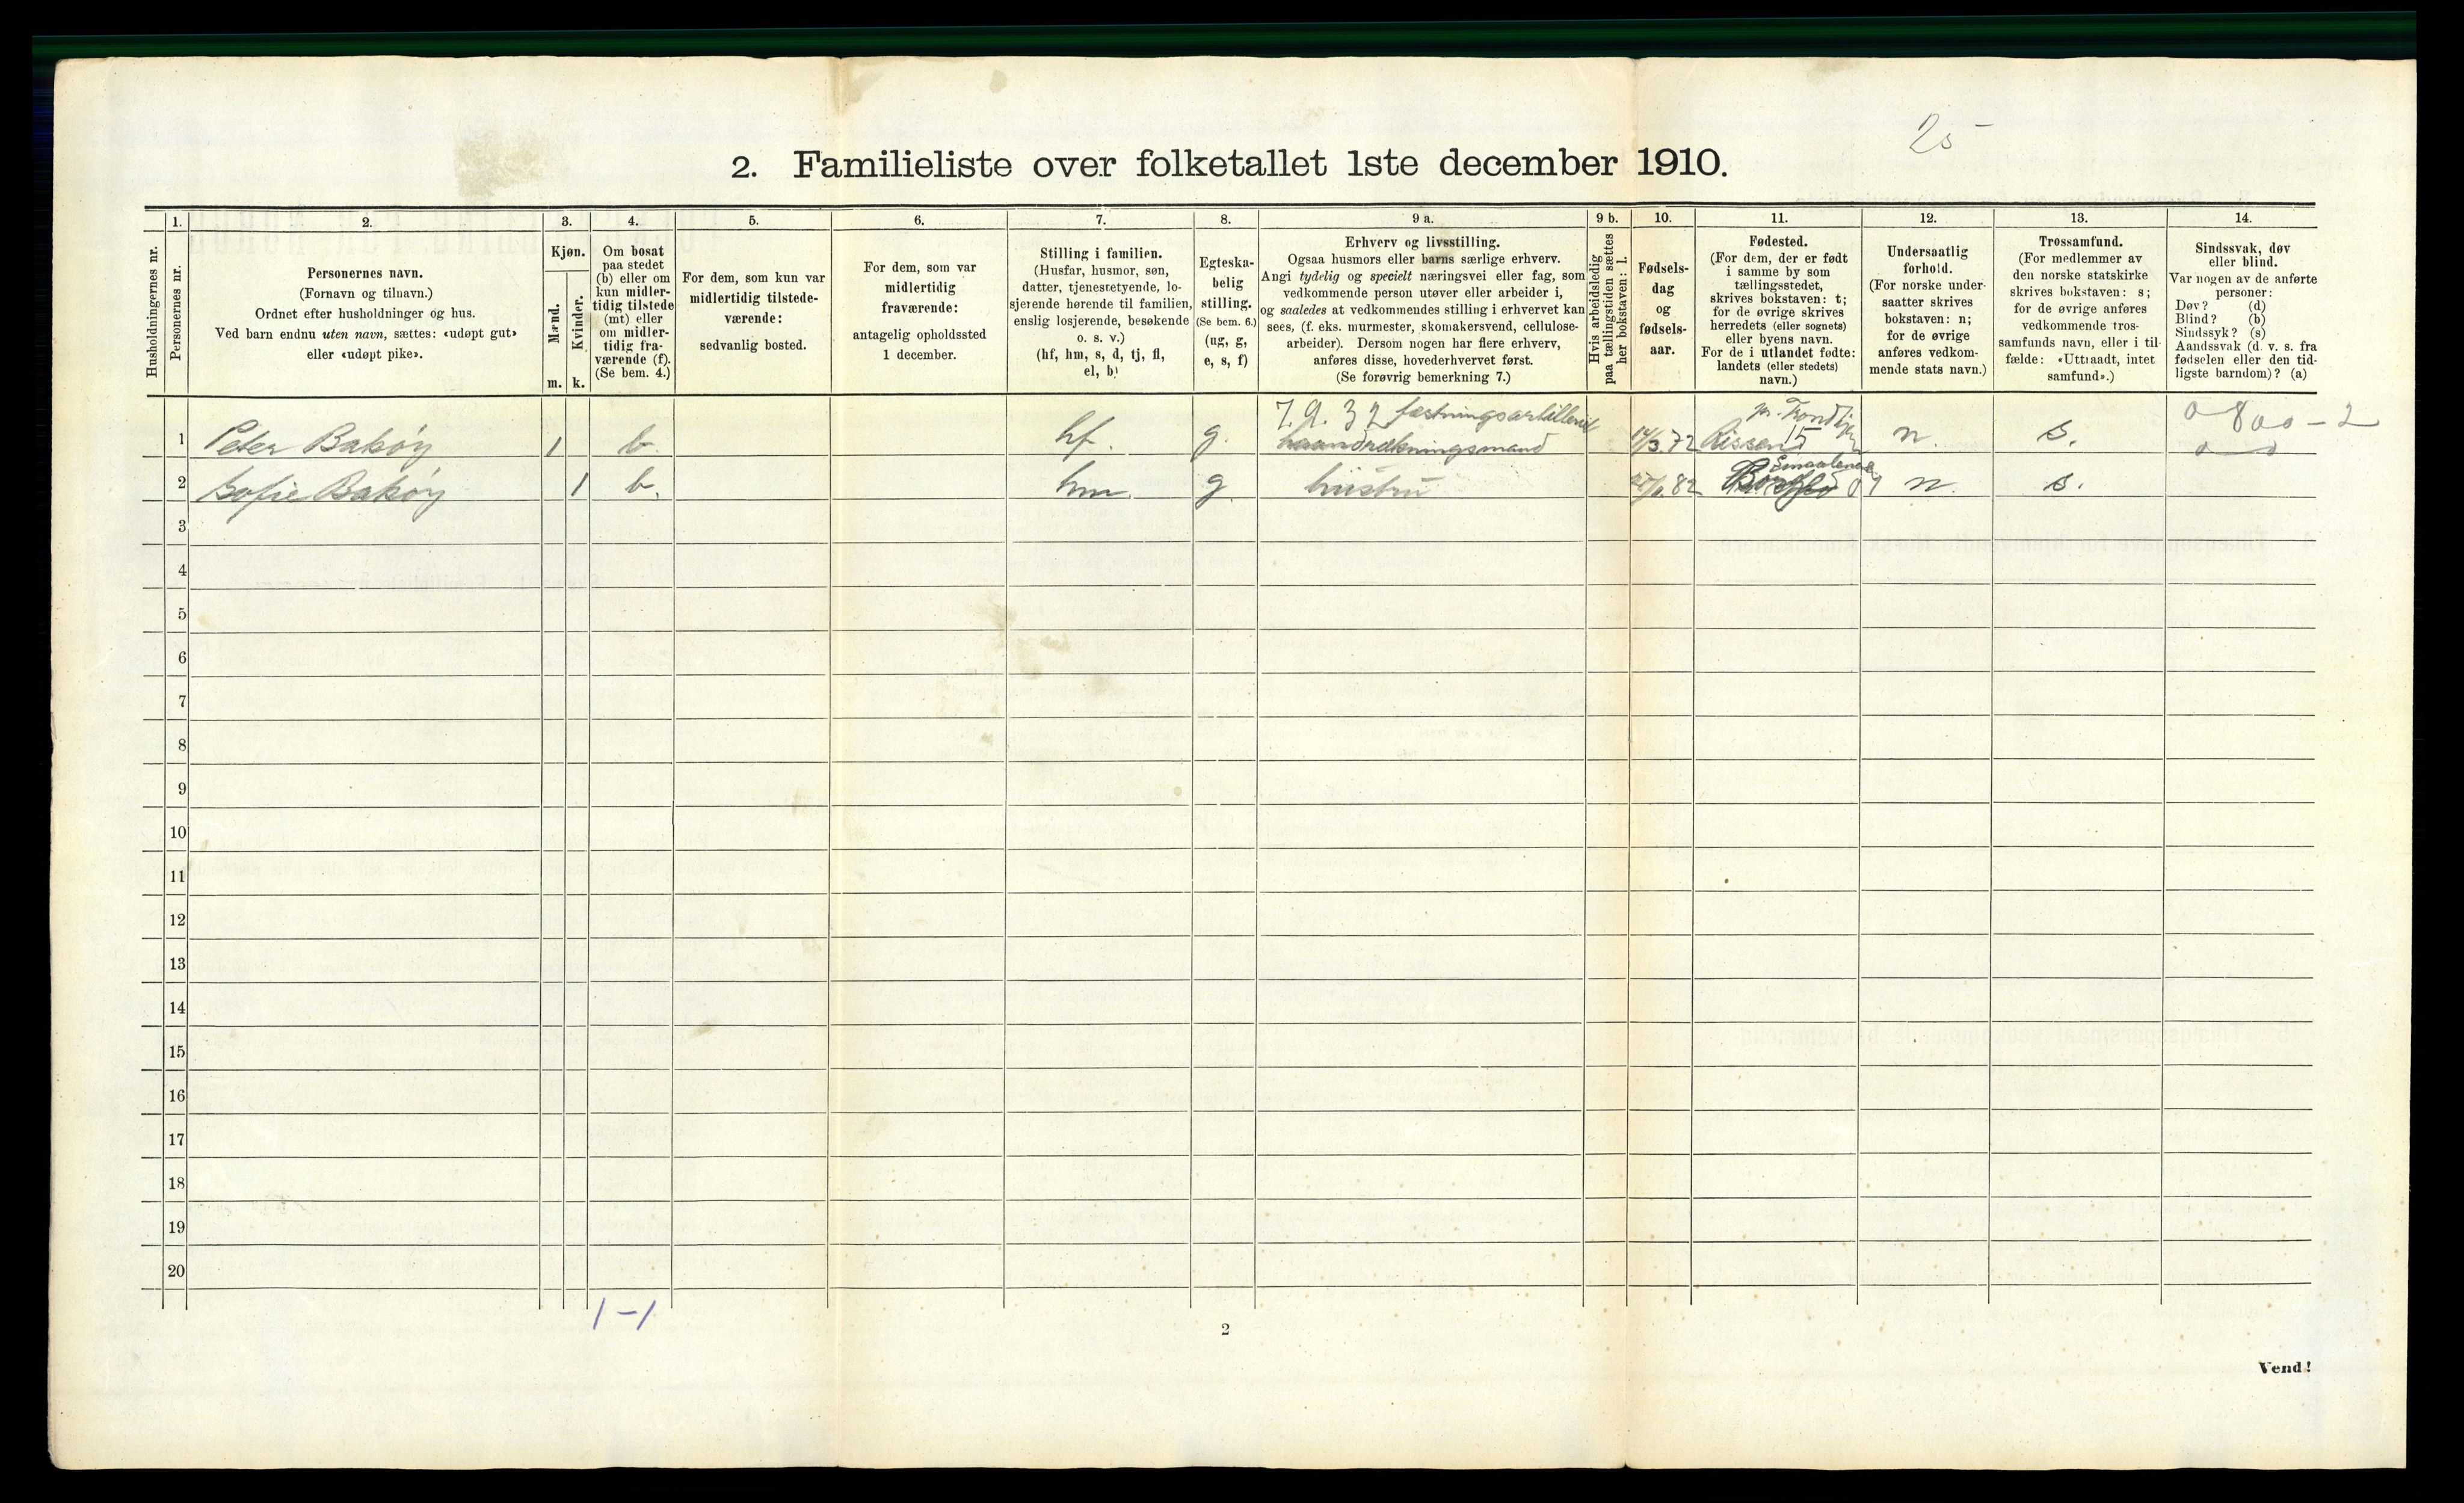 25
2. Familieliste over folketallet 1ste december 1910.
Husholdningernes nr.
1.
Personernes nr.
2.
Personernes navn.
(Fornavn og tilnavn.)
Ordnet efter husholdninger og hus.
Ved barn endnu uten navn, sættes: «udøpt gut»
eller «udøpt pike».
3.
Kjøn.
Mænd.
m.
Kvinder.
k.
4.
Om bosat
paa stedet
(b) eller om
kun midler-
tidig tilstede
(mt) eller
om midler-
tidig fra-
værende (f).
(Se bem. 4.)
5.
For dem, som kun var
midlertidig tilstede-
værende:
sedvanlig bosted.
6.
For dem, som var
midlertidig
fraværende:
antagelig opholdssted
1 december.
7.
Stilling i familien.
(Husfar, husmor, søn,
datter, tjenestetyende, lo-
sjerende hørende til familien,
enslig losjerende, besøkende
o. s. v.)
(hf, hm, s, d, tj, fl,
el, b)
8.
Egteska-
belig
stilling.
(Se bem. 6.)
(ug, g,
e, s, f)
9 a.
Erhverv og livsstilling.
Ogsaa husmors eller barns særlige erhverv.
Angi tydelig og specielt næringsvei eller fag, som
vedkommende person utøver eller arbeider i,
og saaledes at vedkommendes stilling i erhvervet kan
sees, (f. eks. murmester, skomakersvend, cellulose-
arbeider). Dersom nogen har flere erhverv,
anføres disse, hovederhvervet først.
(Se forøvrig bemerkning 7.)
9 b.
Hvis arbeidsledig
paa tællingstiden sættes
her bokstaven: l.
10.
Fødsels-
dag
og
fødsels-
aar.
11.
Fødested.
(For dem, der er født
i samme by som
tællingsstedet,
skrives bokstaven: t;
for de øvrige skrives
herredets (eller sognets)
eller byens navn.
For de i utlandet fødte:
landets (eller stedets)
navn.)
12.
Undersaatlig
forhold.
(For norske under-
saatter skrives
bokstaven: n;
for de øvrige
anføres vedkom-
mende stats navn.)
13.
Trossamfund.
(For medlemmer av
den norske statskirke
skrives bokstaven: s;
for de øvrige anføres
vedkommende tros-
samfunds navn, eller i til-
fælde: «Uttraadt, intet
samfund».)
14.
Sindssvak, døv
eller blind.
Var nogen av de anførte
personer:
Døv? (d)
Blind? (b)
Sindssyk? (s)
Aandssvak (d. v. s. fra
fødselen eller den tid-
ligste barndom)? (a)
7.9.32 fæstningsartilleriet
0 800 - 2
1 Peter Bakøy 1 b. hf. g. haandrækningsmand 14/3.72 Rissen 15 n. s. 0 0
Smaalenene
2 Sofie Bakøy 1 b. hm. g. hustru 82 01 n. s.
3
4
5
6
7
8
9
10
11
12
13
14
15
16
17
18
19
20
1-1
2
Vend!